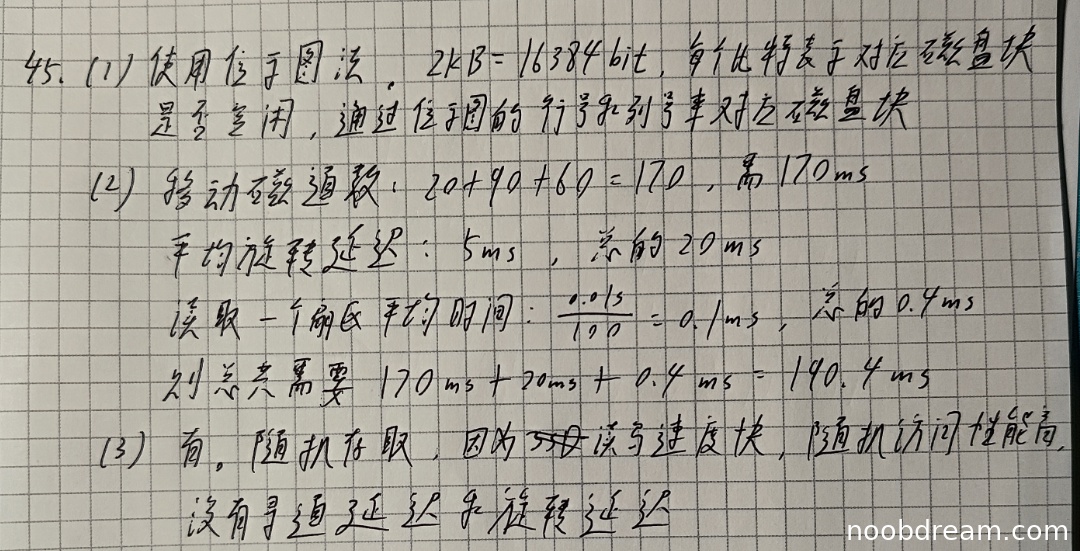 45. (1) 使用位示图法。2KB=16384bit, 每个比特表示对应磁盘块
是否空闲, 通过位示图的行号和列号来对应磁盘块
(2) 移动磁道数: 20+90+60=170, 需170ms
平均旋转延迟: 5ms, 总的20ms
读取一个扇区平均时间: 0.01s/100 = 0.1ms, 总的0.4ms
则总共需要 170ms+20ms+0.4ms=190.4ms
(3) 有。随机存取, 因为读写速度快, 随机访问性能高,
没有寻道延迟和旋转延迟
noobdream.com